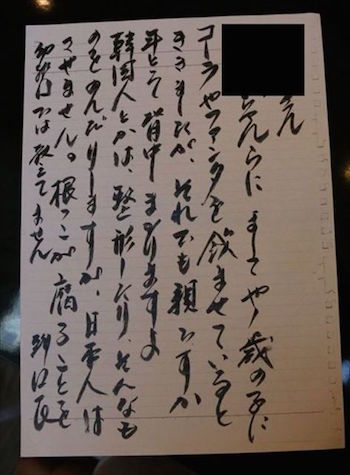 さん
さんらに 歳の子に
コーラやファンタを飲ませていると
ききましたが、それでも親ですか
年とって背中まがりますよ
韓国人とかは、整形したり、そんなも
のをのんだりしますが、日本人は
させません。根っこが腐ることを
教えてません